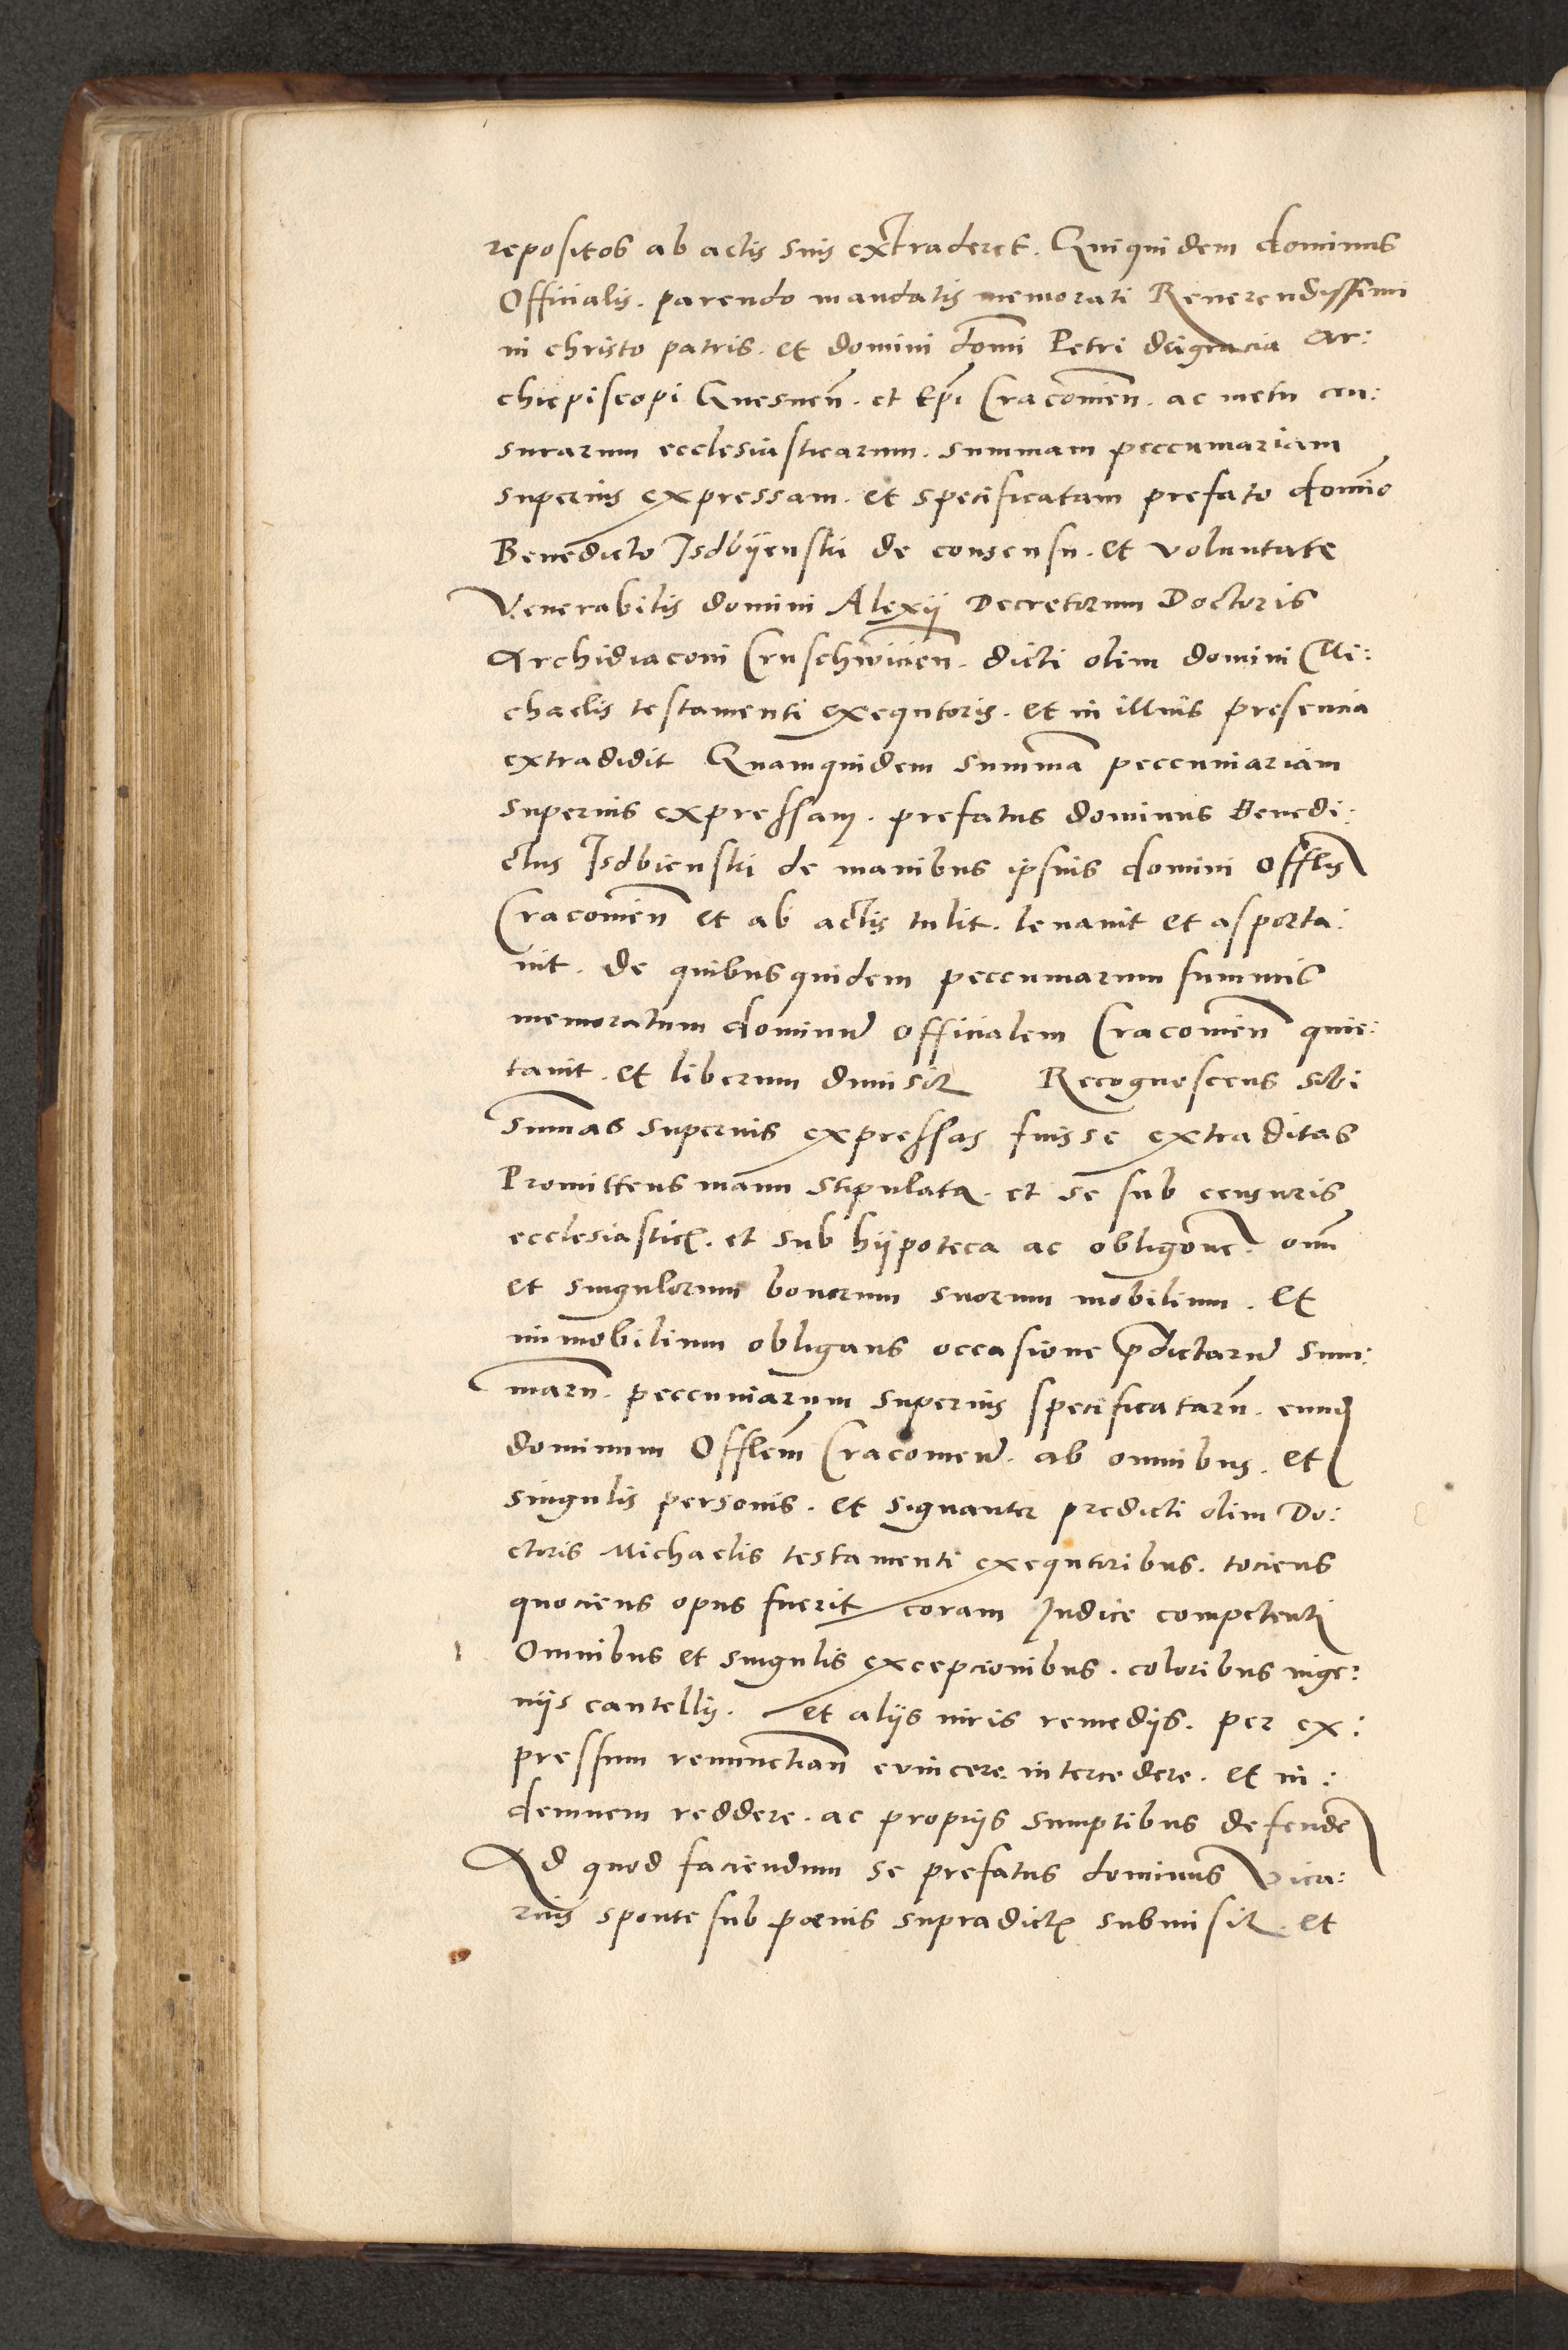 repositos ab actis suis extraderet. Quiquidem dominus
Officialis. parendo mandatis memorati Reuerendissimi
in christo patris. et domini domi Petri dei gracia Ar:
chiepiscopi Gnesnen. et Epi Cracouien. ac metu cen:
surarum ecclesiasticarum. summam peccuniariam
superius expressam. et specificatam prefato domino
Benedicto Isdbÿenski de consensu. et voluntate
Venerabilis domini Alexÿ Decretorum Doctoris
Archidiaconi Cruschwicien. dicti olim domini Mi:
chaelis testamenti exequtoris. et in illius presencia
extradidit Quamquidem summa peccuniariam
superius expressam. prefatus dominus Benedi:
ctus Isdbienski de manibus ipsius domini Offlis
Cracouien et ab actis tulit. leuauit et asporta:
uit. de quibusquidem peccuniarum summis
memoratum dominu officialem Cracouien quie:
tauit. et liberum dimisit Recognoscens sibi
Sumas superius expressas fuisse extraditas
Promittens manu stipulata. et se sub censuris
ecclesiastic. et sub hÿpoteca ac obligone. omi
et singulorum bonorum suorum mobilium. et
immobilium obligans occasione pdictaru sum:
maru. peccuniarum superius specificataru. eund
dominum Offlem Cracouien. ab omnibus. et
singulis personis. et signanter predicti olim Do:
ctoris Michaelis testamenti exequtoribus. tociens
quociens opus fuerit coram Iudice competenti
Omnibus et singulis excepcionibus. coloribus inge:
niis cautellis. et aliis iuris remediis. per ex:
pressum renunctian euincere intercedere. et in:
demnem reddere. ac propiis sumptibus defende
Ad quod faciendum se prefatus dominus Vica:
rius sponte sub poenis supradict submisit. et